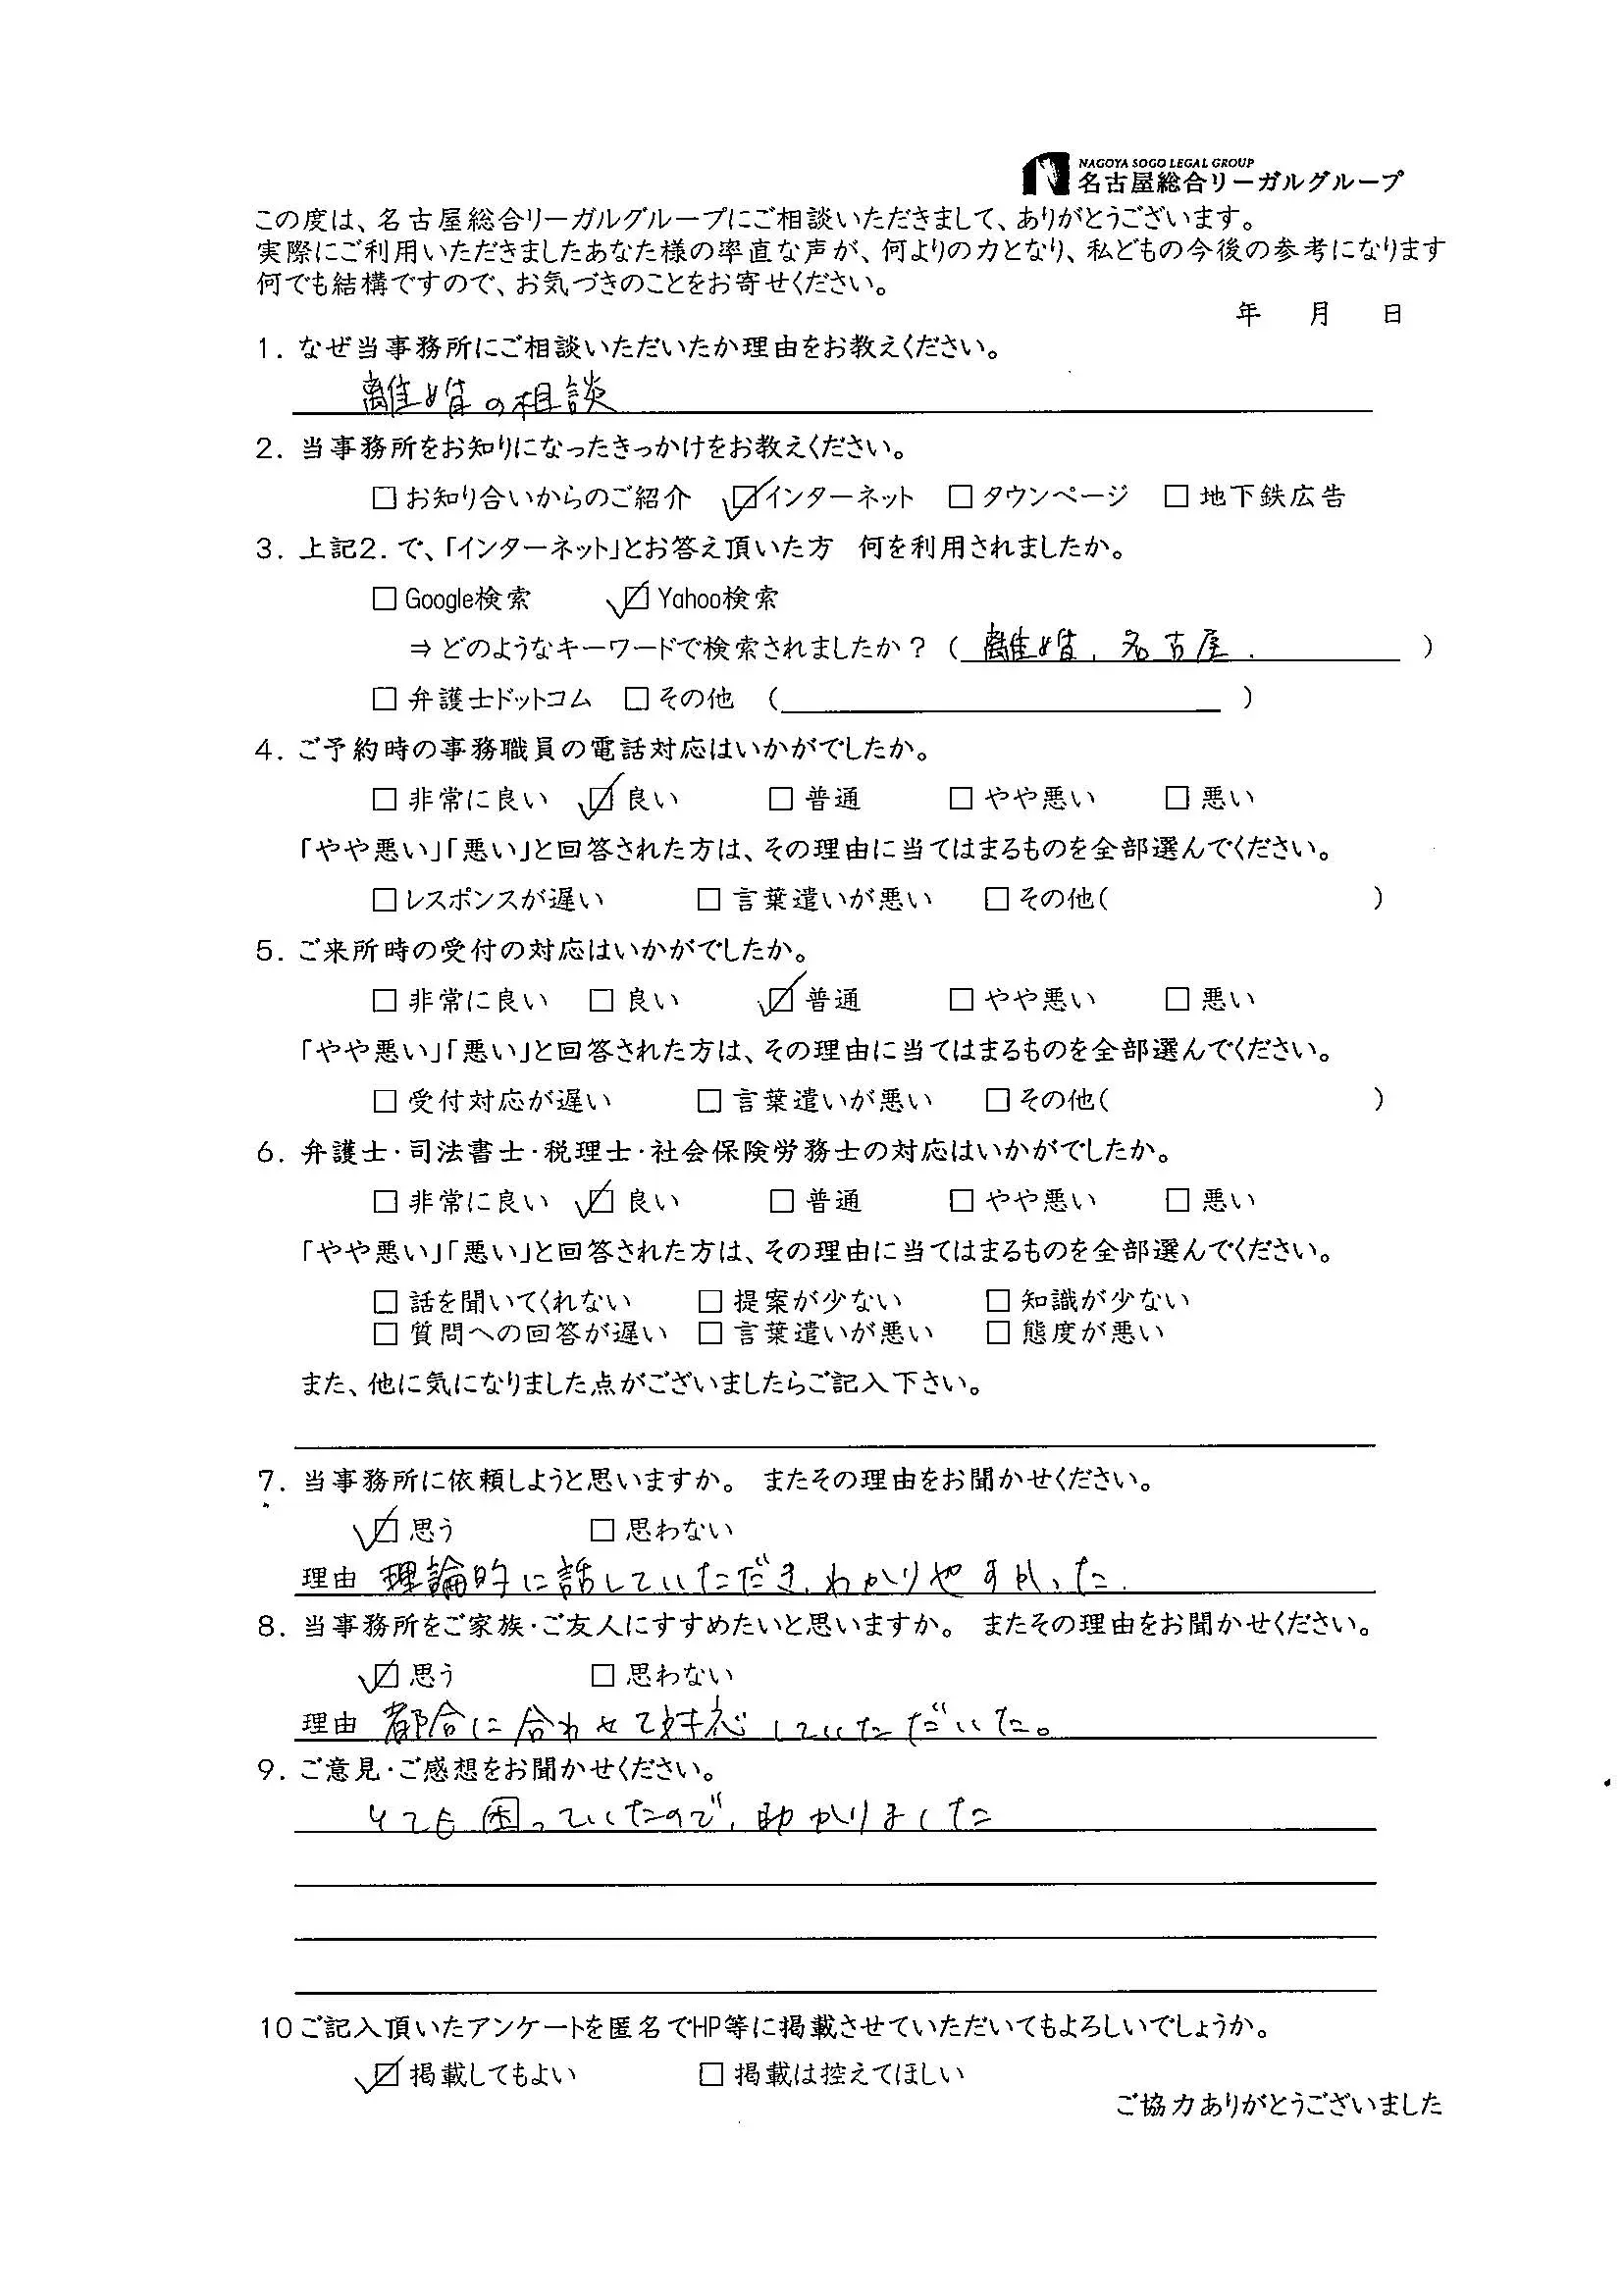 NAGOYA SOGO LEGAL GROUP
名古屋総合リーガルグループ
この度は、名古屋総合リーガルグループにご相談いただきまして、ありがとうございます。
実際にご利用いただきましたあなた様の率直な声が、何よりの力となり、私どもの今後の参考になります
何でも結構ですので、お気づきのことをお寄せください。
年 月 日
1. なぜ当事務所にご相談いただいたか理由をお教えください。
離婚の相談
2. 当事務所をお知りになったきっかけをお教えください。
□ お知り合いからのご紹介 ☑ インターネット □ タウンページ □ 地下鉄広告
3. 上記2. で、「インターネット」とお答え頂いた方 何を利用されましたか。
□ Google検索 ☑ Yahoo検索
⇒ どのようなキーワードで検索されましたか？ ( 離婚、名古屋. )
□ 弁護士ドットコム □ その他 ( )
4. ご予約時の事務職員の電話対応はいかがでしたか。
□ 非常に良い ☑ 良い □ 普通 □ やや悪い □ 悪い
「やや悪い」「悪い」と回答された方は、その理由に当てはまるものを全部選んでください。
□ レスポンスが遅い □ 言葉遣いが悪い □ その他( )
5. ご来所時の受付の対応はいかがでしたか。
□ 非常に良い □ 良い ☑ 普通 □ やや悪い □ 悪い
「やや悪い」「悪い」と回答された方は、その理由に当てはまるものを全部選んでください。
□ 受付対応が遅い □ 言葉遣いが悪い □ その他( )
6. 弁護士・司法書士・税理士・社会保険労務士の対応はいかがでしたか。
□ 非常に良い ☑ 良い □ 普通 □ やや悪い □ 悪い
「やや悪い」「悪い」と回答された方は、その理由に当てはまるものを全部選んでください。
□ 話を聞いてくれない □ 提案が少ない □ 知識が少ない
□ 質問への回答が遅い □ 言葉遣いが悪い □ 態度が悪い
また、他に気になりました点がございましたらご記入下さい。
7. 当事務所に依頼しようと思いますか。 またその理由をお聞かせください。
☑ 思う □ 思わない
理由 理論的に話していただき、わかりやすかった.
8. 当事務所をご家族・ご友人にすすめたいと思いますか。 またその理由をお聞かせください。
☑ 思う □ 思わない
理由 都合に合わせて対応していただいた。
9. ご意見・ご感想をお聞かせください。
とても困っていたので、助かりました
10 ご記入頂いたアンケートを匿名でHP等に掲載させていただいてもよろしいでしょうか。
☑ 掲載してもよい □ 掲載は控えてほしい
ご協力ありがとうございました